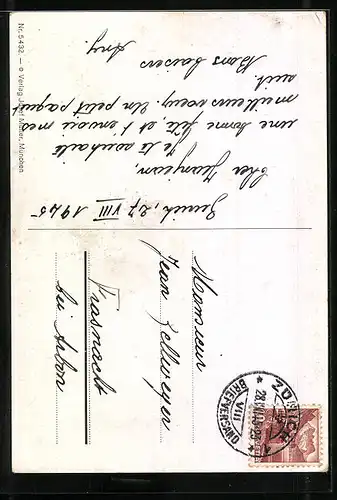 Zürich, 27 VIII 1945
Cher Jeanjean,
Je te souhaite
une bonne fête, et t'envoie mes
meilleurs vœux. Un petit paquet
suit.
Bons baisers
Any
Monsieur
Jean Zellweger
Frasnacht
bei Arbon
ZÜRICH
BRIEFVERSAND
VIII
Nr. 5432. — © Verlag Josef Müller, München